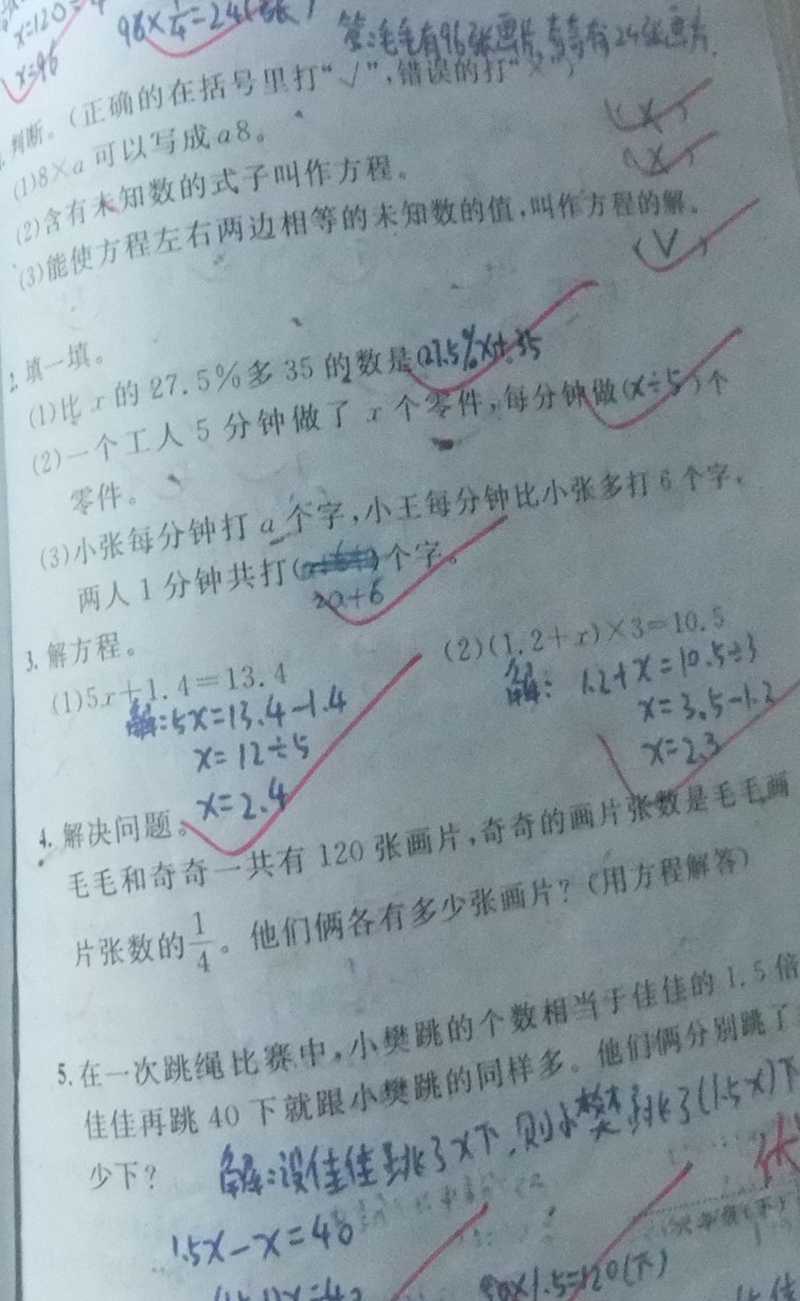 x=120÷
x=96
96×1/4=24(张)
答:毛毛有96张画片,奇奇有24张画片.
1.判断。(正确的在括号里打“√”,错误的打“×”)
(1)8×a可以写成a8。 (×)
(2)含有未知数的式子叫作方程。 (×)
(3)能使方程左右两边相等的未知数的值,叫作方程的解。
(√)
2.填一填。
(1)比x的27.5%多35的数是(27.5%x+35
(2)一个工人5分钟做了x个零件,每分钟做(x÷5)个
零件。
(3)小张每分钟打a个字,小王每分钟比小张多打6个字,
两人1分钟共打( )个字。
2a+6
3.解方程。
(1)5x+1.4=13.4 (2)(1.2+x)×3=10.5
解:5x=13.4-1.4 解: 1.2+x=10.5÷3
x=12÷5 x=3.5-1.2
x=2.4 x=2.3
4.解决问题。
毛毛和奇奇一共有120张画片,奇奇的画片张数是毛毛画
片张数的1/4。他们俩各有多少张画片?(用方程解答)
5.在一次跳绳比赛中,小樊跳的个数相当于佳佳的1.5倍
佳佳再跳40下就跟小樊跳的同样多。他们俩分别跳了
少下?
解:设佳佳跳了x下,则小樊跳了(1.5x)下
1.5x-x=40
80×1.5=120(下)